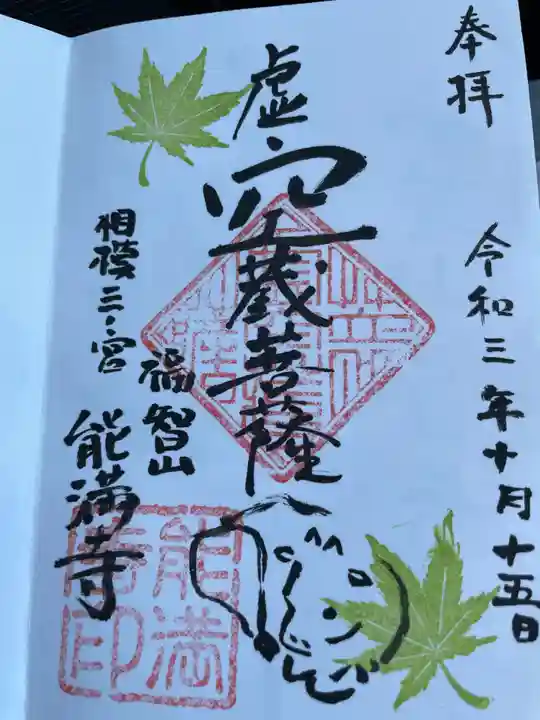 奉拝
令和三年十月十五日
虚空蔵菩薩
相模三ノ宮
福智山
能満寺
能満
寺印